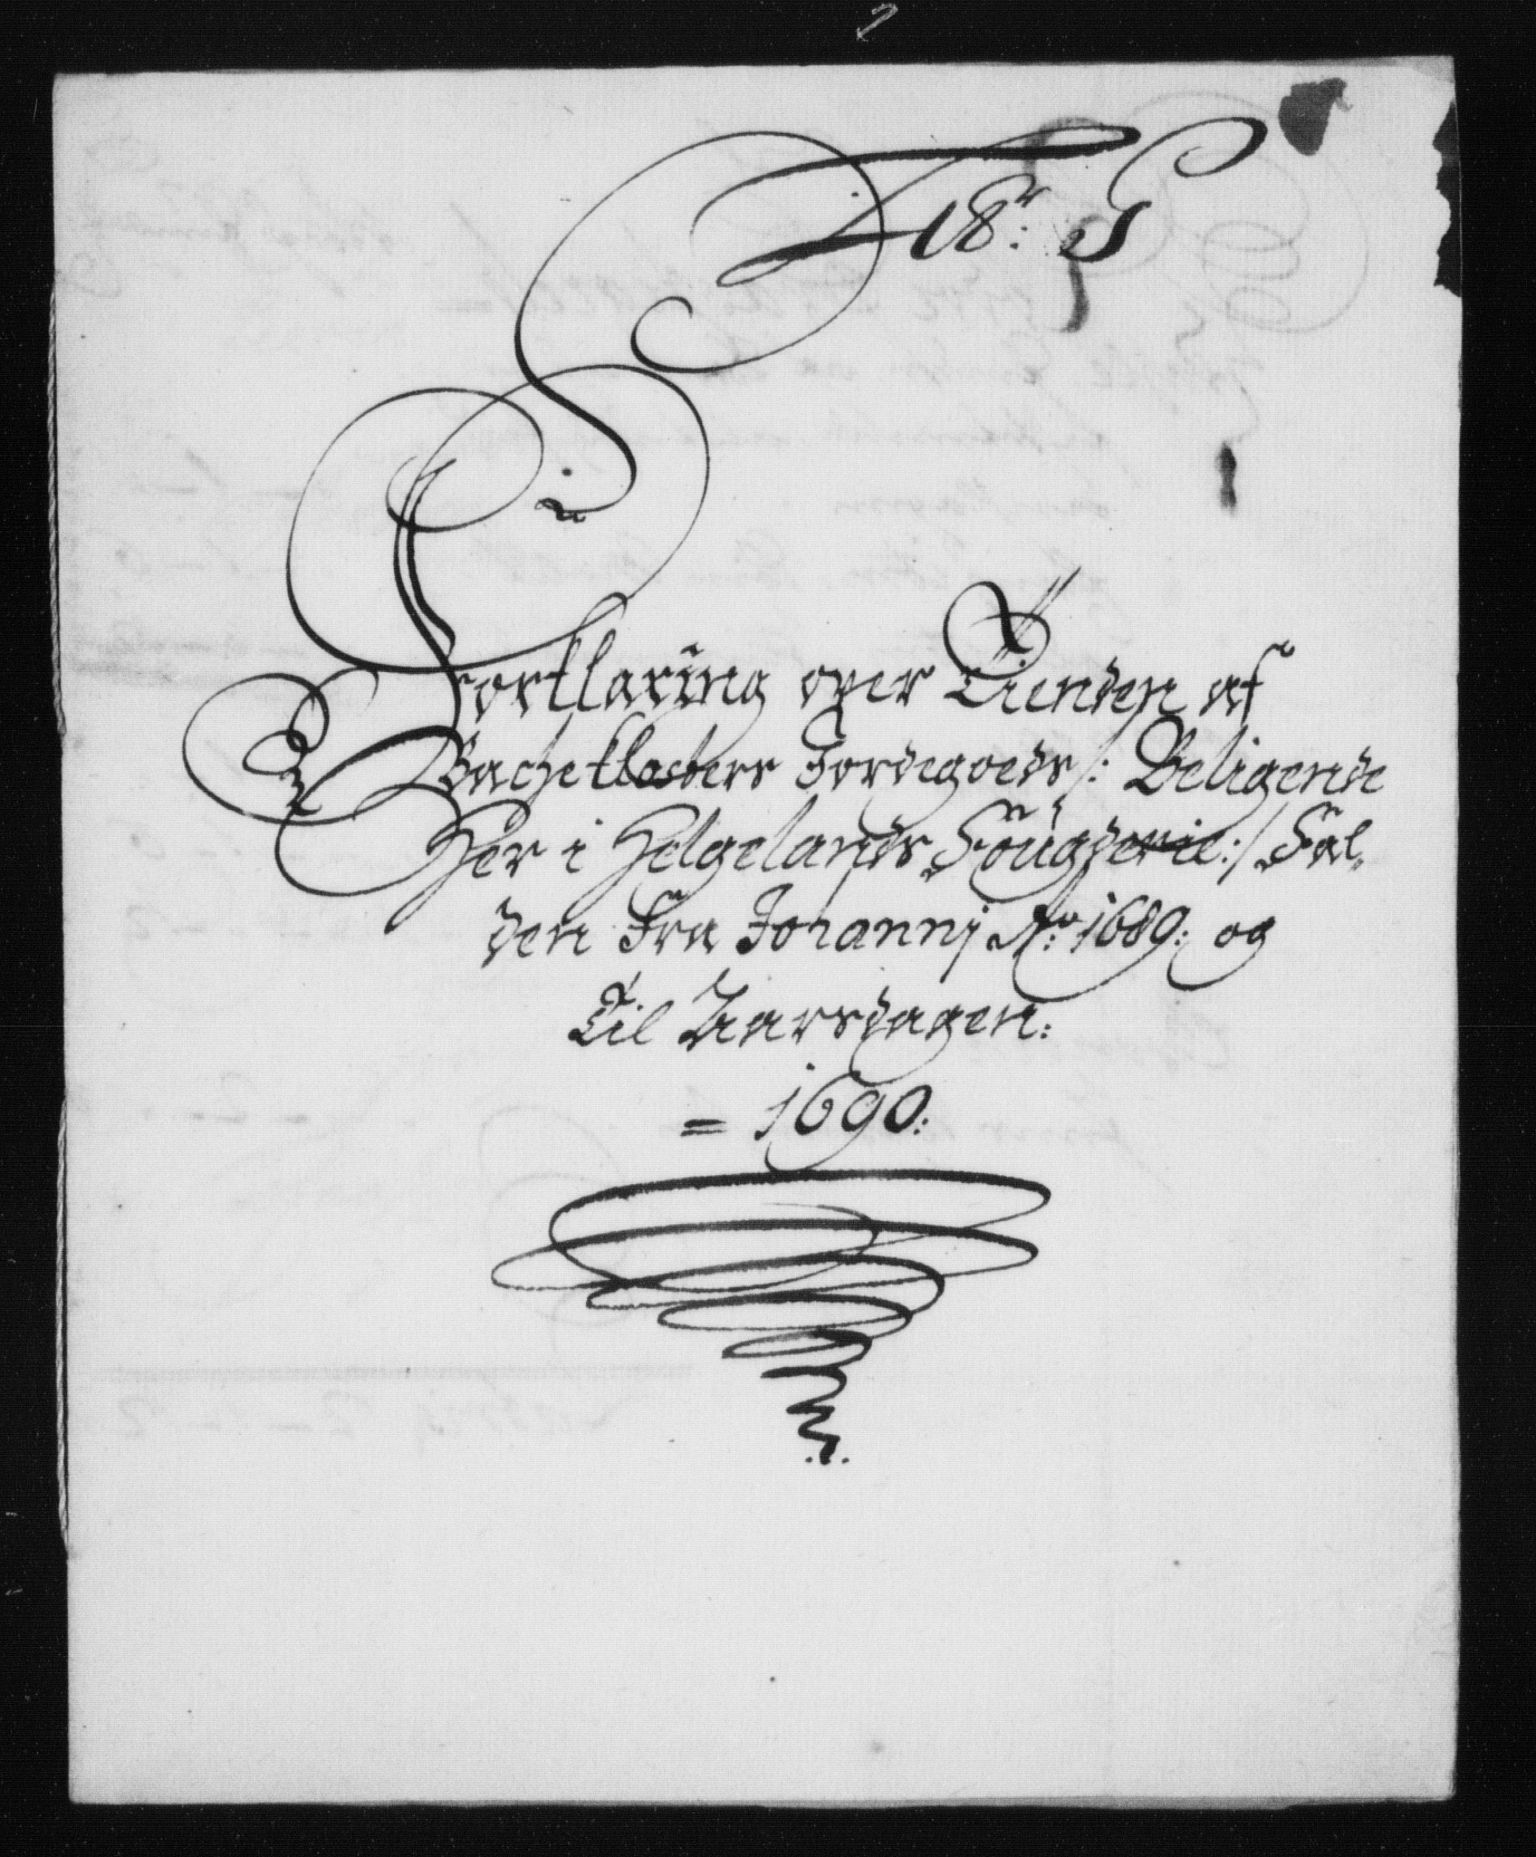 Forklaring over Tienden af
Bache klosters Jordegoeds /: Beligende
Her i Helgelands Fougderie :/ Fal„
den Fra Johannj Ao: 1689: og
Til Aarsdagen:
= 1690: